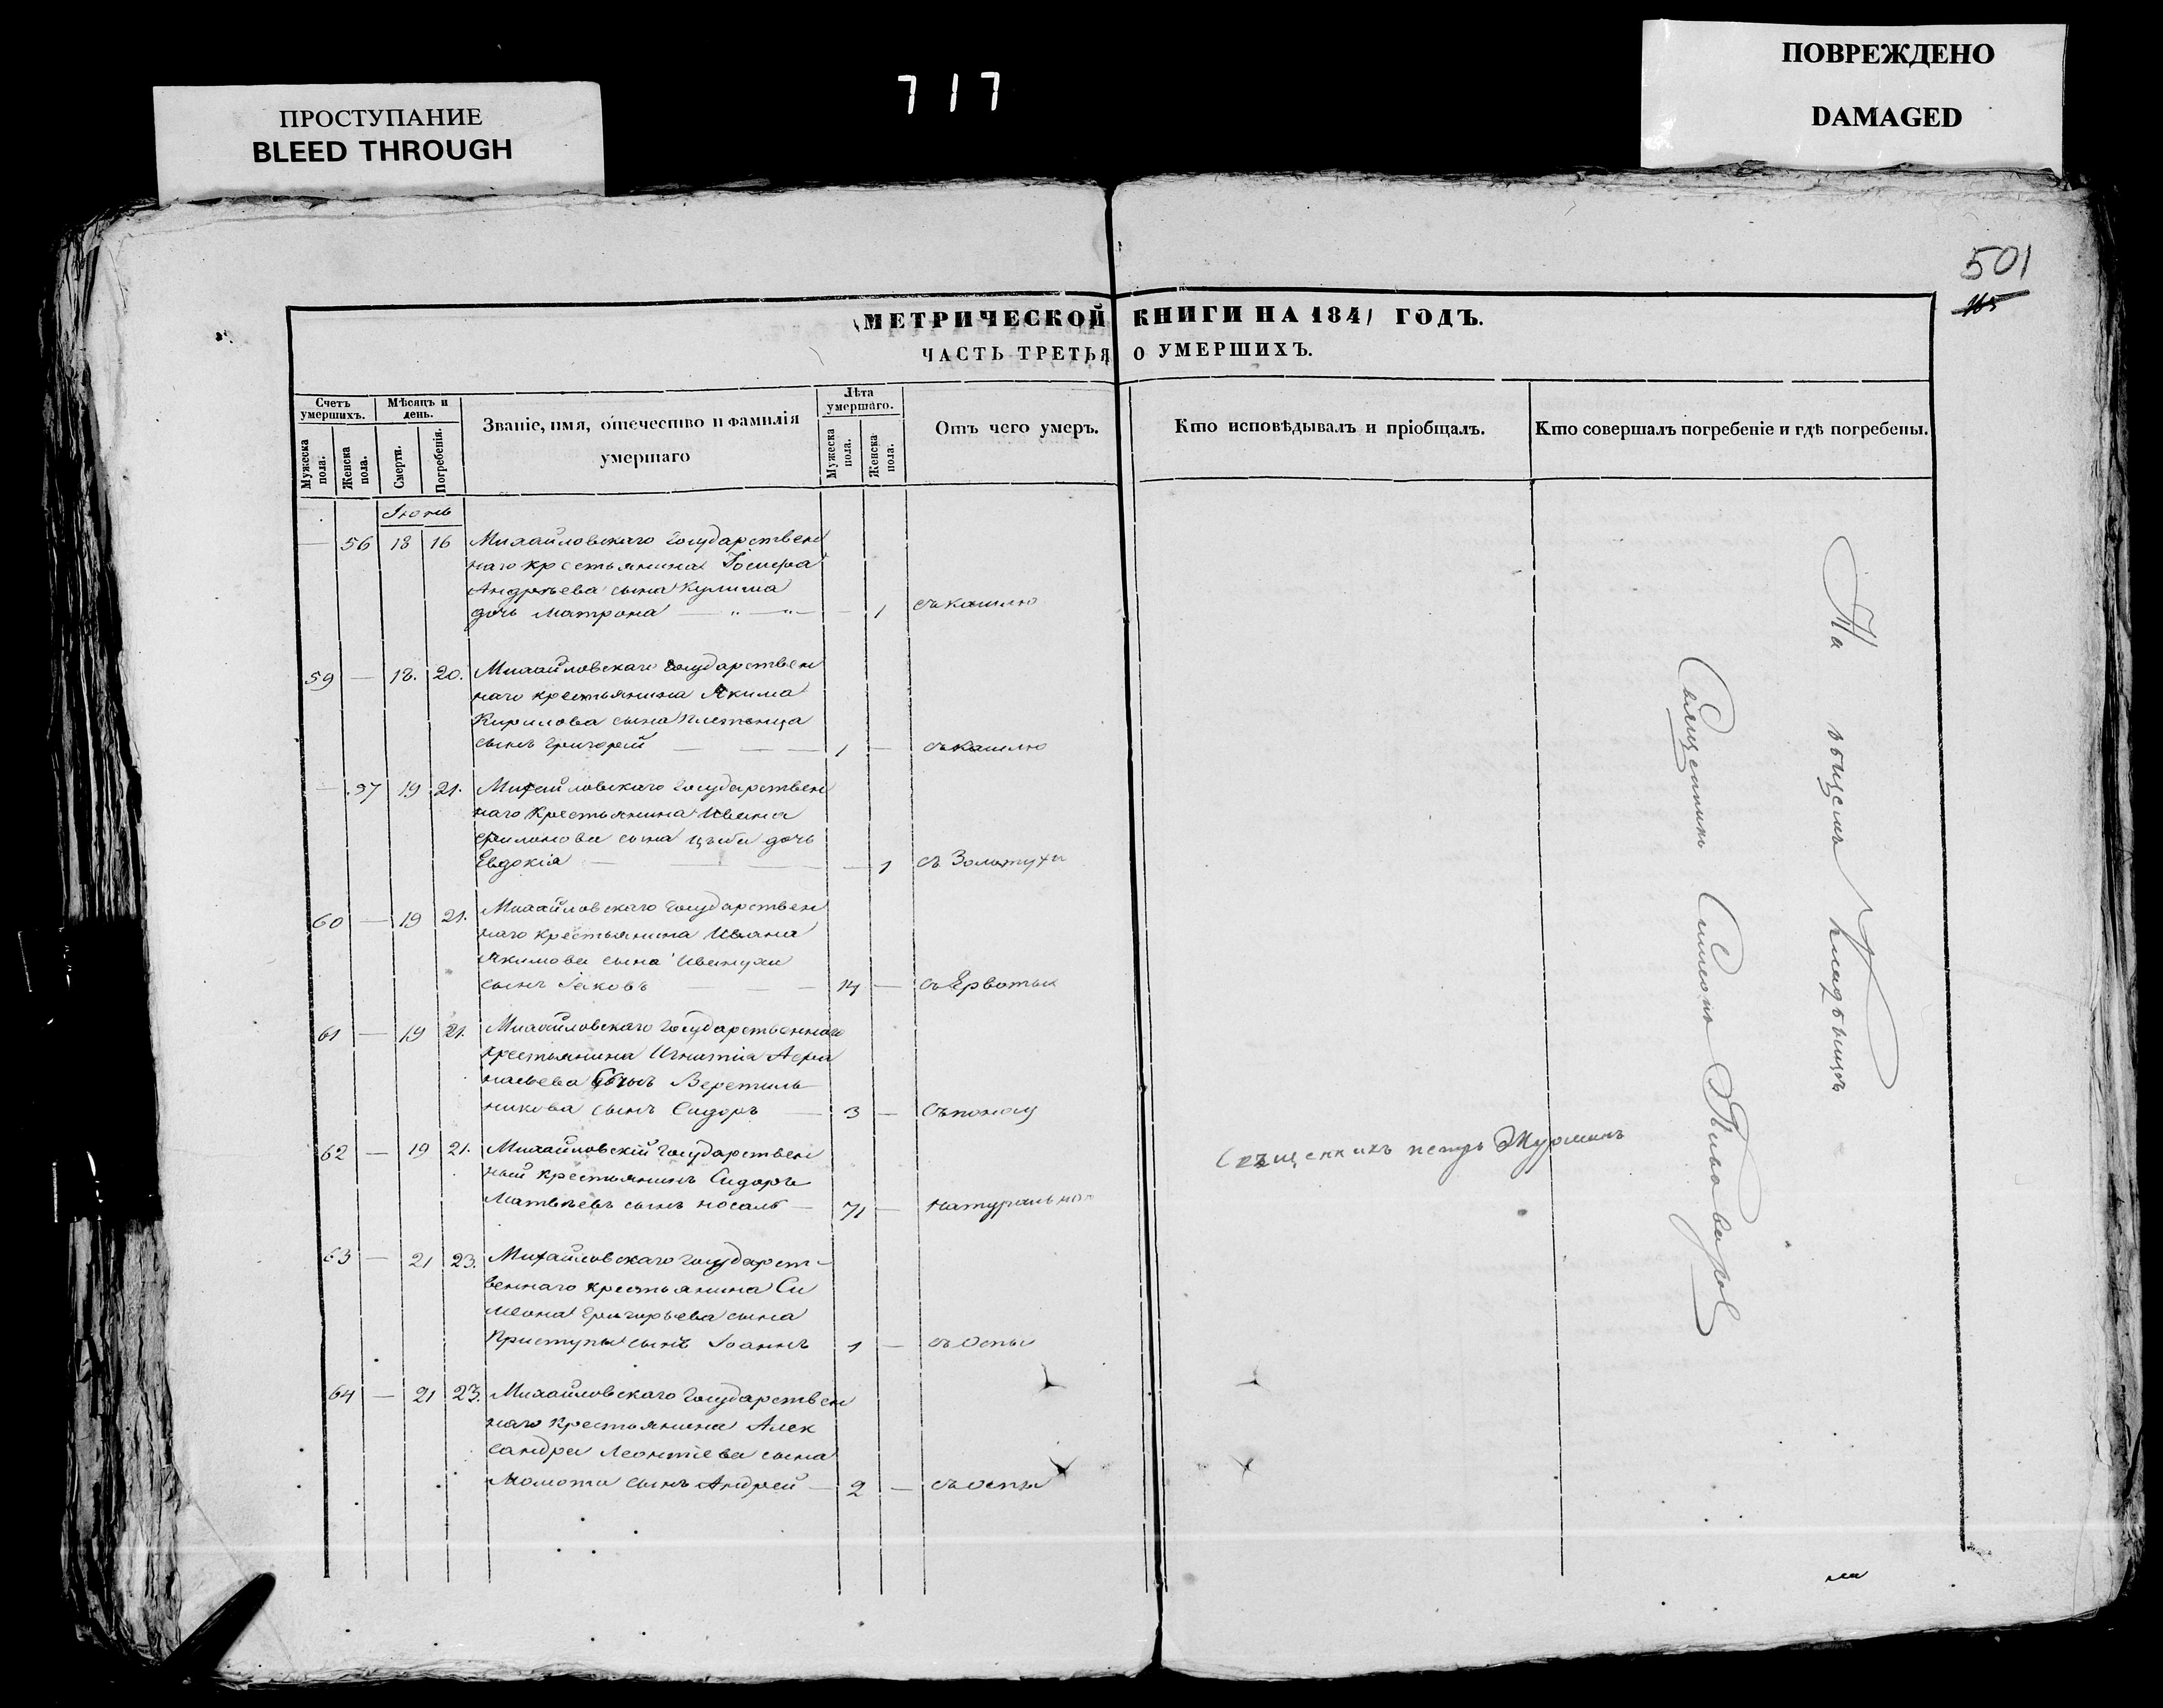 717
ПРОСТУПАНИЕ
BLEED THROUGH
ПОВРЕЖДЕНО
DAMAGED
501
165
МЕТРИЧЕСКОЙ КНИГИ НА 1841 ГОДЪ.
ЧАСТЬ ТРЕТЬЯ О УМЕРШИХЪ.
Счетъ умершихъ.
Мужеска пола.
Женска пола.
Мѣсяцъ и день.
Смерти.
Погребенія.
Званіе, имя, отечество и фамилія
умершаго
Лѣта умершаго.
Мужеска пола.
Женска пола.
Отъ чего умеръ.
Кто исповѣдывалъ и пріобщалъ.
Кто совершалъ погребеніе и гдѣ погребены.
Іюнь
— 56 13 16 Михайловскаго государствен
наго крестьянина Іосифа
Андрѣева сына Кулиша
дочь Матрона — „ — „ — — 1 съ кашлю
59 — 18. 20. Михайловскаго государствен
наго крестьянина Якима
Кирилова сына
сынъ Григорий — — — 1 — съ кашлю
— 57 19 21. Михайловскаго государствен
наго крестьянина Ивана
сына Цыби дочь
Евдокія — — — 1 съ Золотухи
60 — 19 21. Михайловскаго государствен
наго крестьянина Ивана
Якимова сына
сынъ Іаковъ — — — 14 —
61 — 19 21. Михайловскаго государственнаго
крестьянина Игнатія Афа
насьева Веретиль
никова сынъ Сидоръ — 3 — съ поносу
62 — 19 21. Михайловскій государствен
ный крестьянинъ Сидоръ
Матвѣевъ сынъ Носаль — 71 — натурально
63 — 21 23. Михайловскаго государст-
веннаго крестьянина Си
меона Григорьева сына
Приступы сынъ Іоаннъ 1 — съ Оспы
64 — 21 23. Михайловскаго государствен
наго крестьянина Алек
сандра Леонтіева сына
Момота сынъ Андрей — 2 — съ оспы
Священникъ Петръ
На общемъ Кладбищѣ
Священникъ Симеонъ